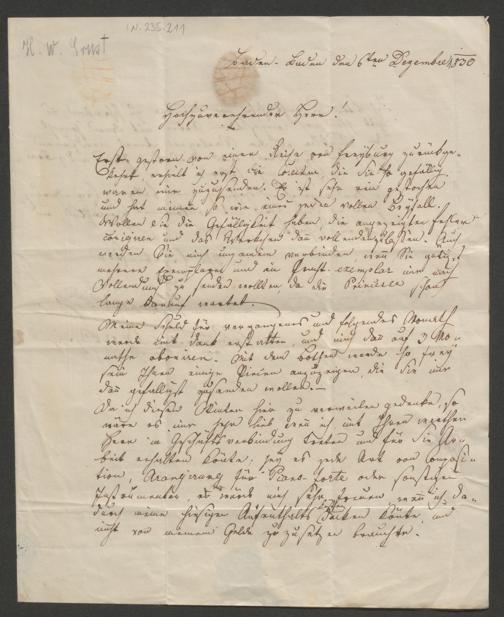 I.N. 235.211
H. W. Ernst
Baden-Baden den 6ten Dezember 1830
Hochzuverehrender Herr!
Erst gestern von einer Reise von Freyburg zurückge-
kehrt erhielt ich erst die die Sie so gefällig
waren mir zuzusenden. Es ist sehr rein gestochen
und hat meinen so wie einen jeden vollen Beyfall.
Wollen Sie die Gefälligkeit haben die angezeigten Fehler
corigiren und das Werkchen dan vollenden lassen. Auch
werden Sie mich ungemein verbinden, wen Sie gütigst
mehrere Exemplare und ein Pracht-exemplar mir nach
Vollendung zu senden wollen da die schon
lange darauf wartet.
Meine Schuld für vergangenes und folgendes Monath
werde mit Dank erstatten und mich dan auf 3 Mo-
nathe aboniren. Mit dem Bothen werde so frey
sein Ihnen einige Piecen anzuzeigen, die Sie mir
dan gefälligst zusenden wollen.—
Da ich diesen Winter hier zu verweilen gedenke, so
wäre es mir sehr lieb wen ich mit Ihnen werther
Herr in Geschäftsverbindung treten und für Sie Ar-
beit erhalten könte, sey es jede Art von Composi-
tion, Arangirung für Piano-forte oder sonstigen
Instrumenten, es würde mich sehr freuen, wen ich da-
durch meinen hiesigen Aufenthalt decken könte, und
nicht von meinem Gelde zuzusetzen brauchte.